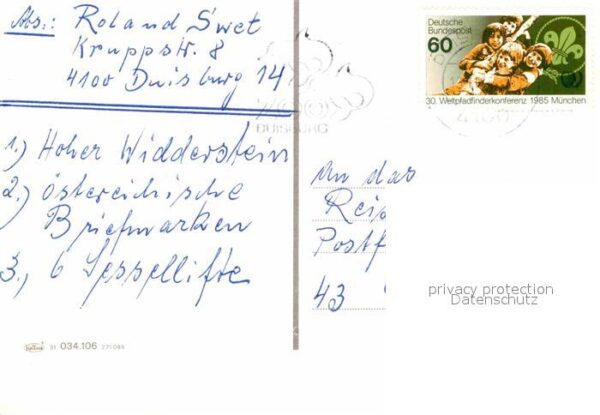 Abs.: Roland Swet
Kruppstr. 8
4100 Duisburg 14
1.) Hoher Widderstein
2.) österreichische
Briefmarken
3.) 6 Sessellifte
31 034.106 271088
ZOO
DUISBURG
Deutsche
Bundespost
60
30. Weltpfadfinderkonferenz 1985 München
An das
Reis
Postf
43
privacy protection
Datenschutz